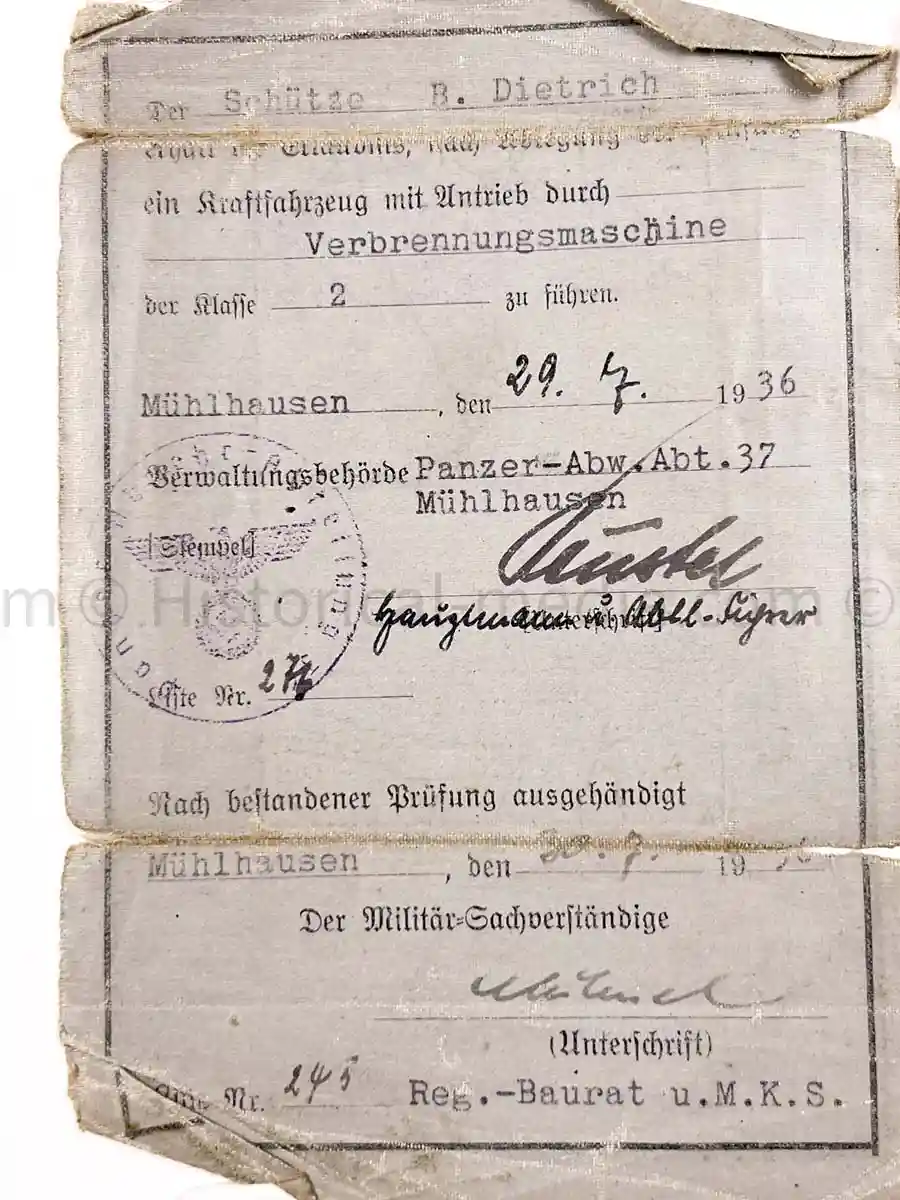 Der Schütze B. Dietrich
erhält die Erlaubnis, nach Ablegung der Prüfung
ein Kraftfahrzeug mit Antrieb durch
Verbrennungsmaschine
der Klasse 2 zu führen.
Mühlhausen, den 29. 7. 1936
Verwaltungsbehörde Panzer-Abw.Abt.37
Mühlhausen
(Stempel)
Hauptmann u. Abtl.-Führer
(Unterschrift)
Liste Nr.
Nach bestandener Prüfung ausgehändigt
Mühlhausen, den 7. 1936
Der Militär-Sachverständige
(Unterschrift)
Nr. 245 Reg.-Baurat u.M.K.S.
© Historical-media.com ©